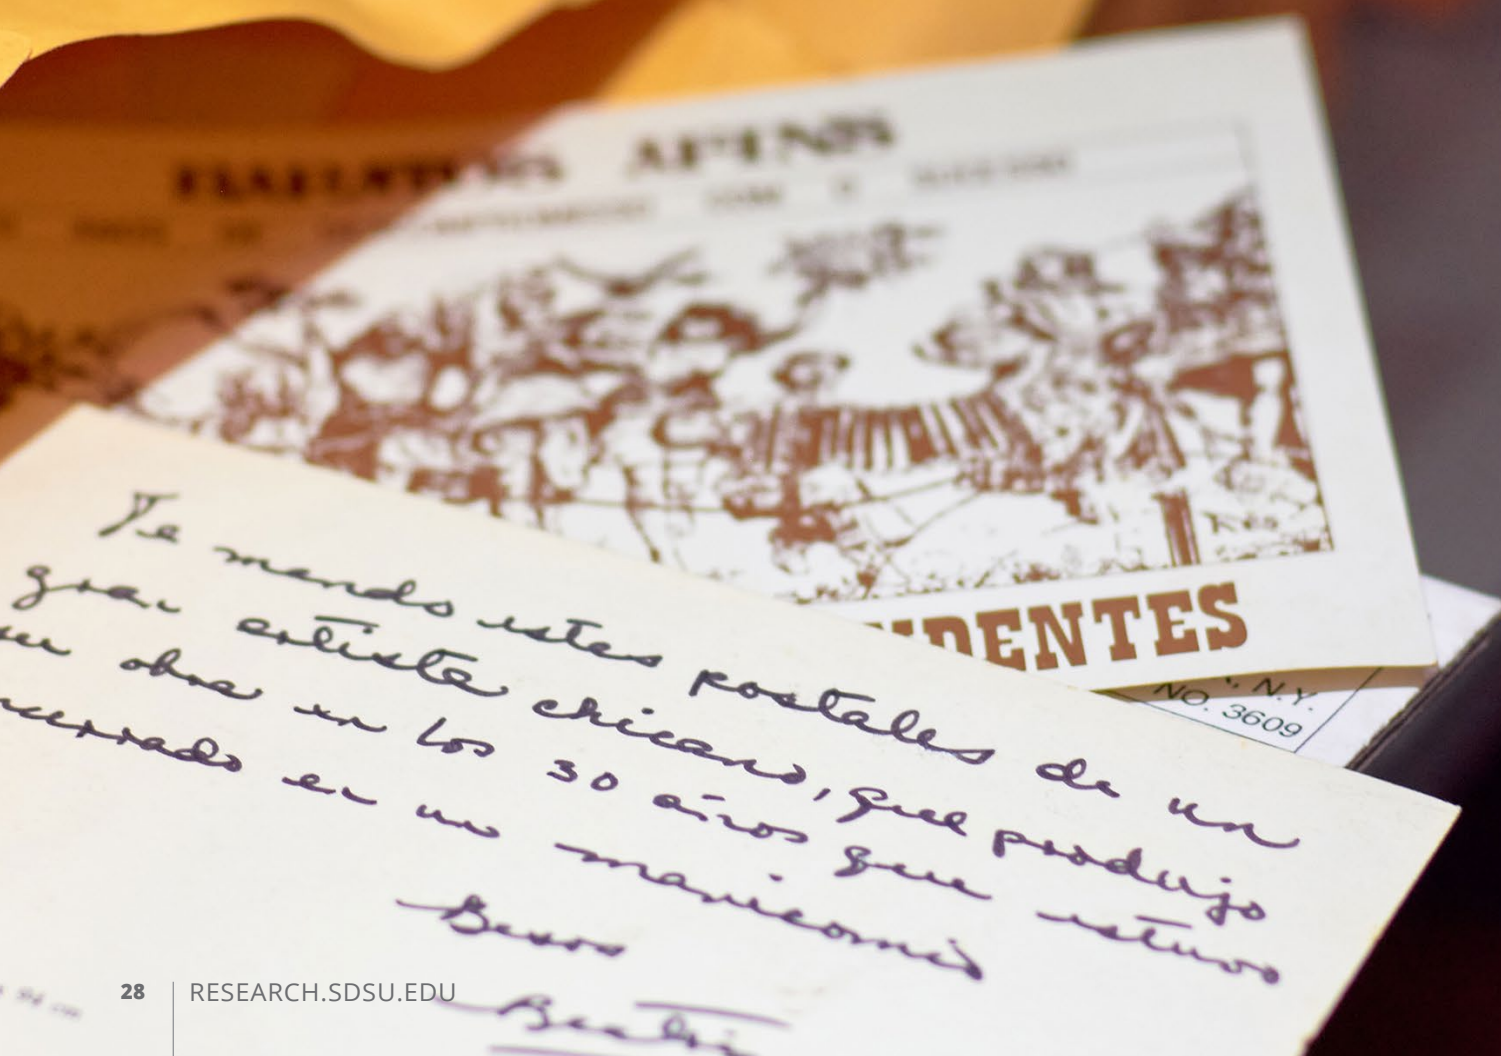 COM O
UDENTES
, N.Y.
NO. 3609
Te mando estas postales de un
gran artista chicano, quel produjo
su obra en los 30 años que estuvo
ncerrado en un manicomio
Besos
94 cm
28 RESEARCH.SDSU.EDU